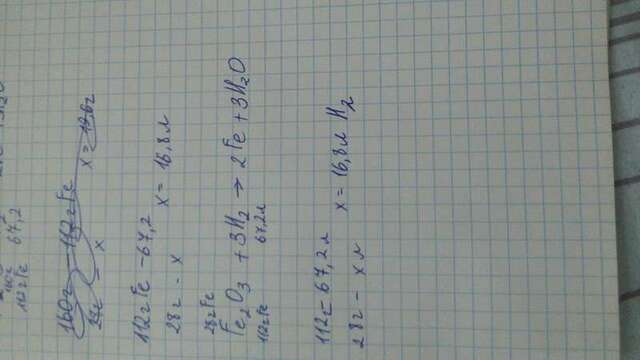 160г
112гFe 67,2
160г - 112гFe
28г - x x = 19,6г
112гFe - 67,2
28г - x x = 16,8л
28гFe
Fe2O3 + 3H2 → 2Fe + 3H2O
112гFe 67,2л
112г - 67,2л
28г - xл x = 16,8л H2